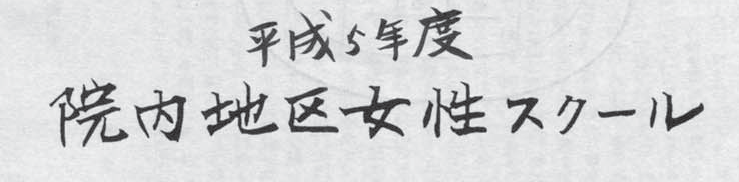 平成5年度
院内地区女性スクール